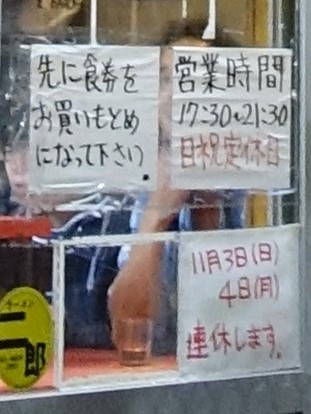 先に食券を
お買いもとめ
になって下さい.
営業時間
17:30~21:30
日祝定休日
11月3日(日)
4日(月)
連休します。
ラーメン
二郎